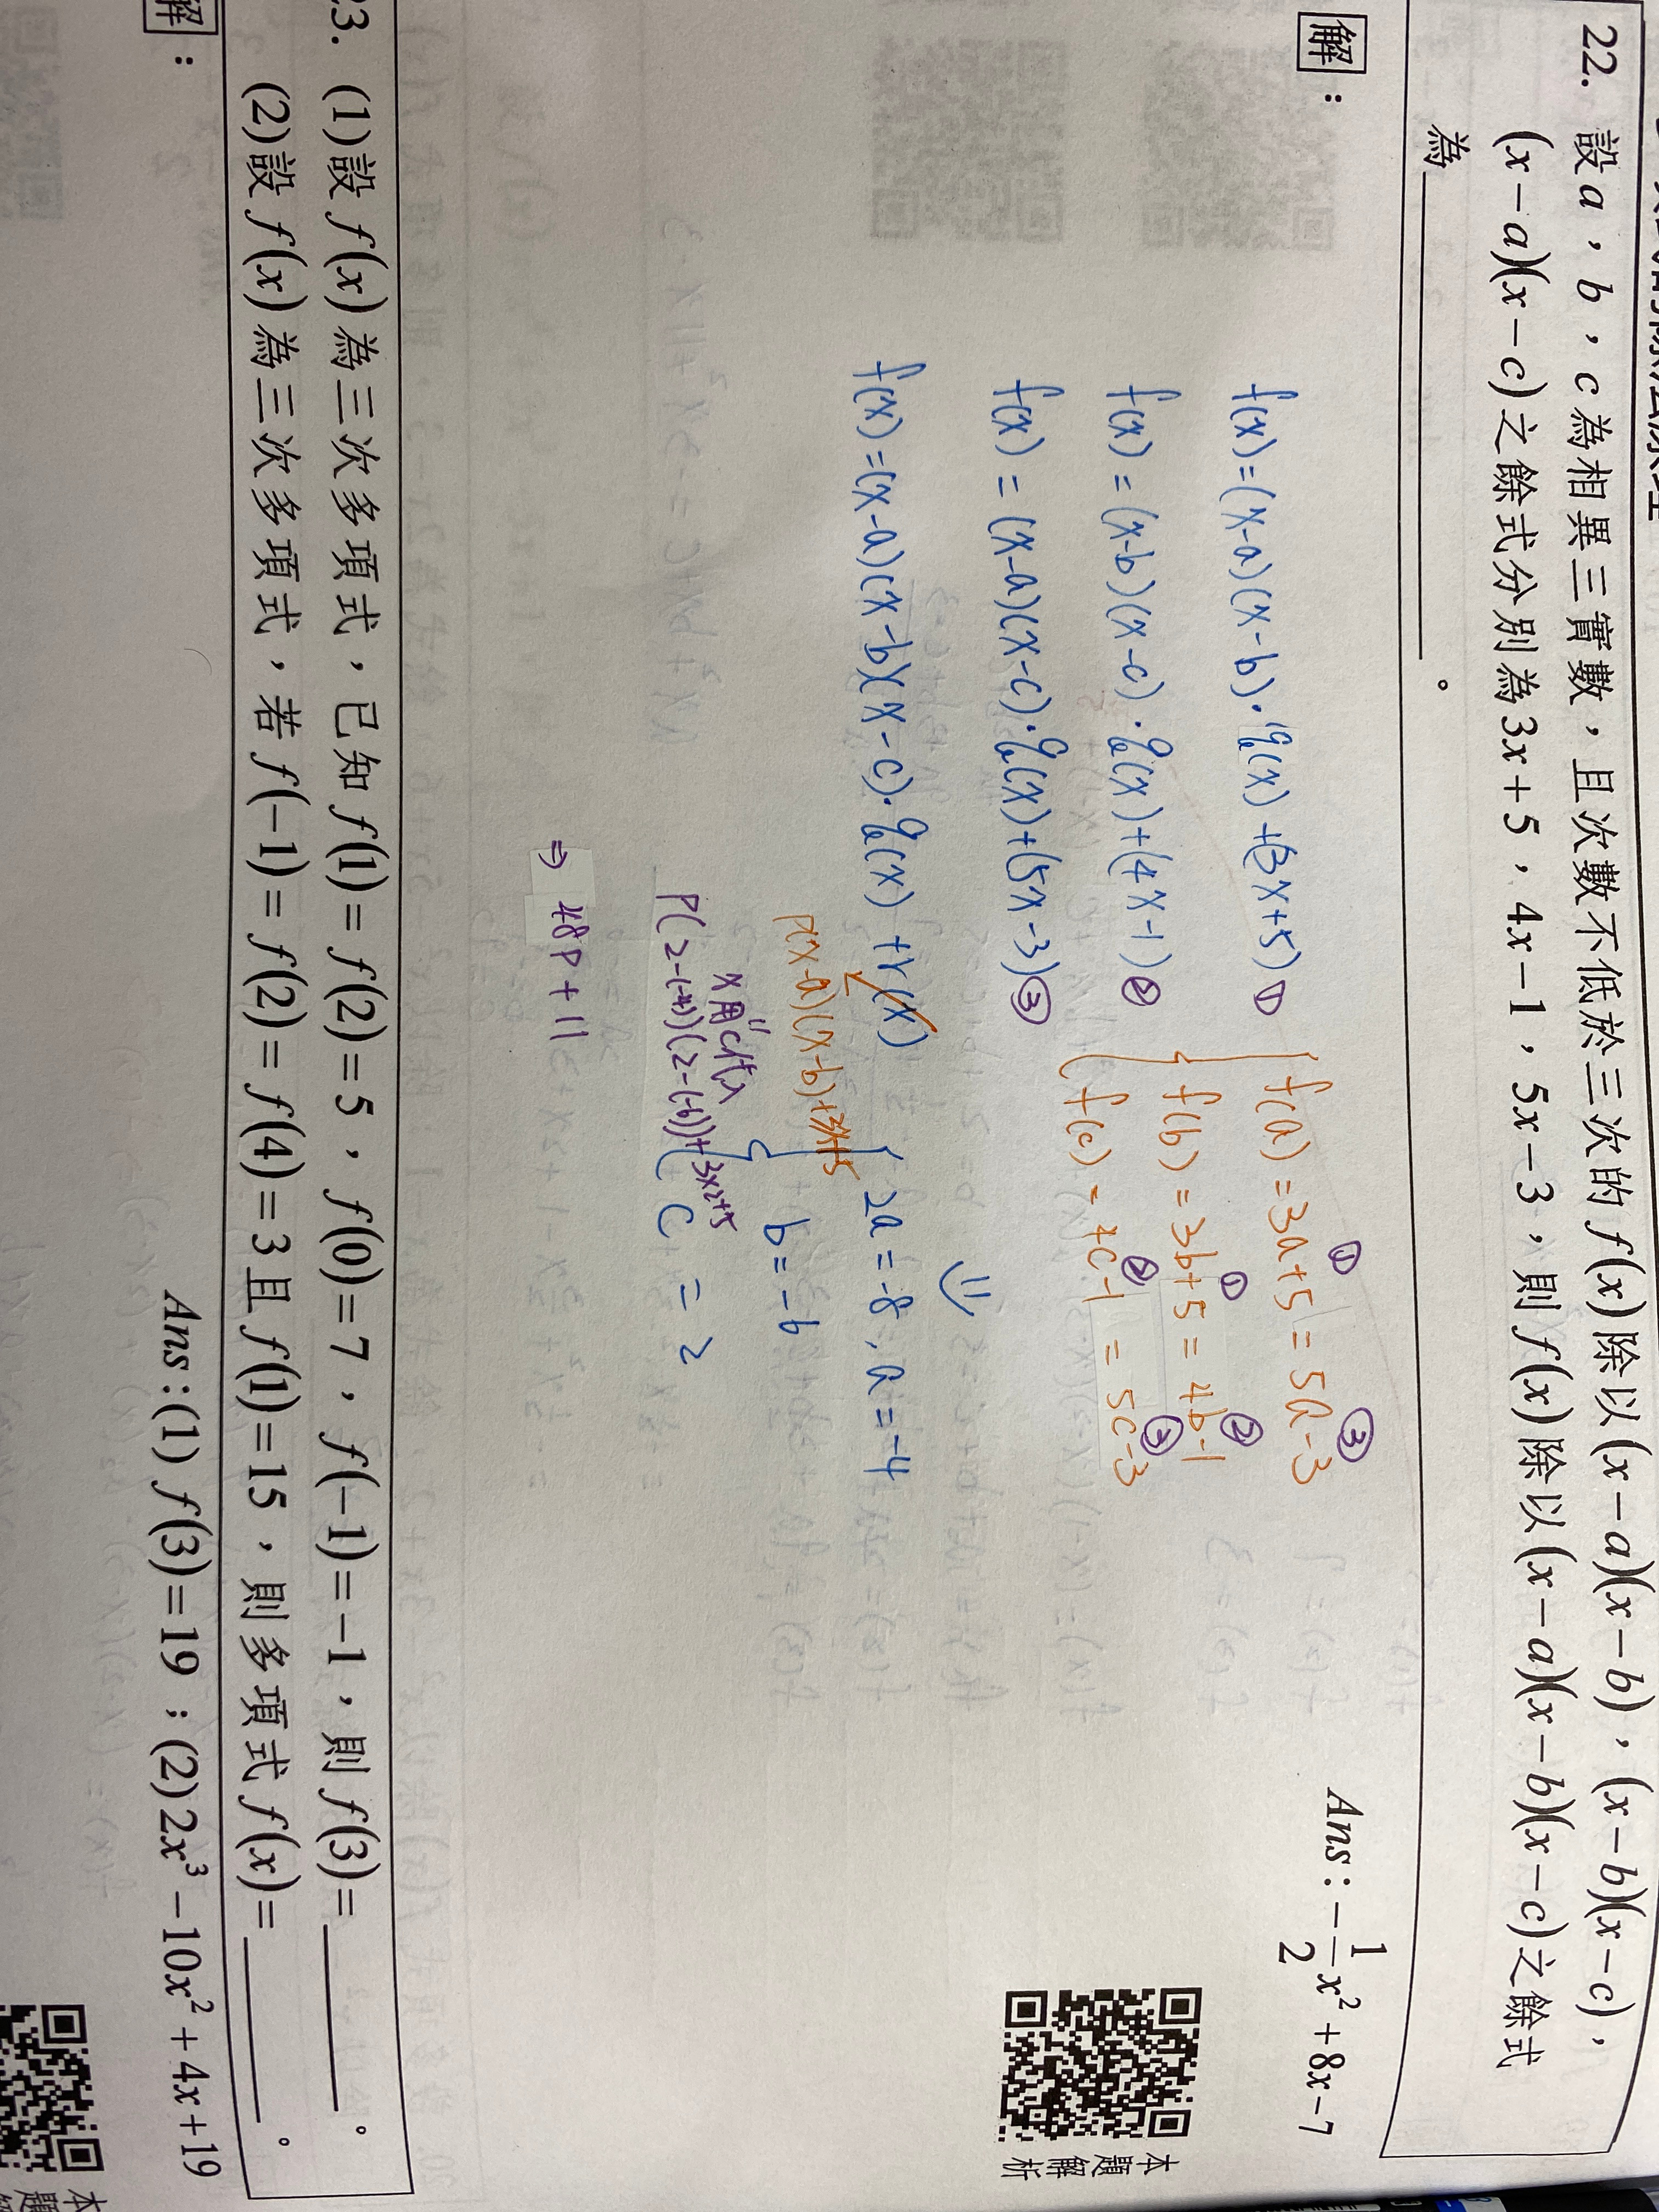 22. 設a，b，c為相異三實數，且次數不低於三次的f(x)除以(x－a)(x－b)，(x－b)(x－c)，
(x－a)(x－c)之餘式分別為3x＋5，4x－1，5x－3，則f(x)除以(x－a)(x－b)(x－c)之餘式
為＿＿＿＿＿＿。
Ans：－1/2x²＋8x－7
解：
本題解析
f(x)=(x-a)(x-b)·q(x)+(3x+5)①
f(x)=(x-b)(x-c)·q(x)+(4x-1)②
f(x)=(x-a)(x-c)·q(x)+(5x-3)③
① ③
f(a)=3a+5=5a-3
① ②
f(b)=3b+5=4b-1
② ③
f(c)=4c-1=5c-3
f(x)=(x-a)(x-b)(x-c)·q(x)+r(x)
p(x-a)(x-b)+3x+5
2a=-8, a=-4
b=-6
c=2
x用c代入
P(2-(-4))(2-(-6))+3×2+5
⇒ 48P+11
23. (1)設f(x)為三次多項式，已知f(1)＝f(2)＝5，f(0)＝7，f(－1)＝－1，則f(3)＝＿＿＿＿。
(2)設f(x)為三次多項式，若f(－1)＝f(2)＝f(4)＝3且f(1)＝15，則多項式f(x)＝＿＿＿＿。
Ans：(1) f(3)＝19；(2)2x³－10x²＋4x＋19
解：
本題